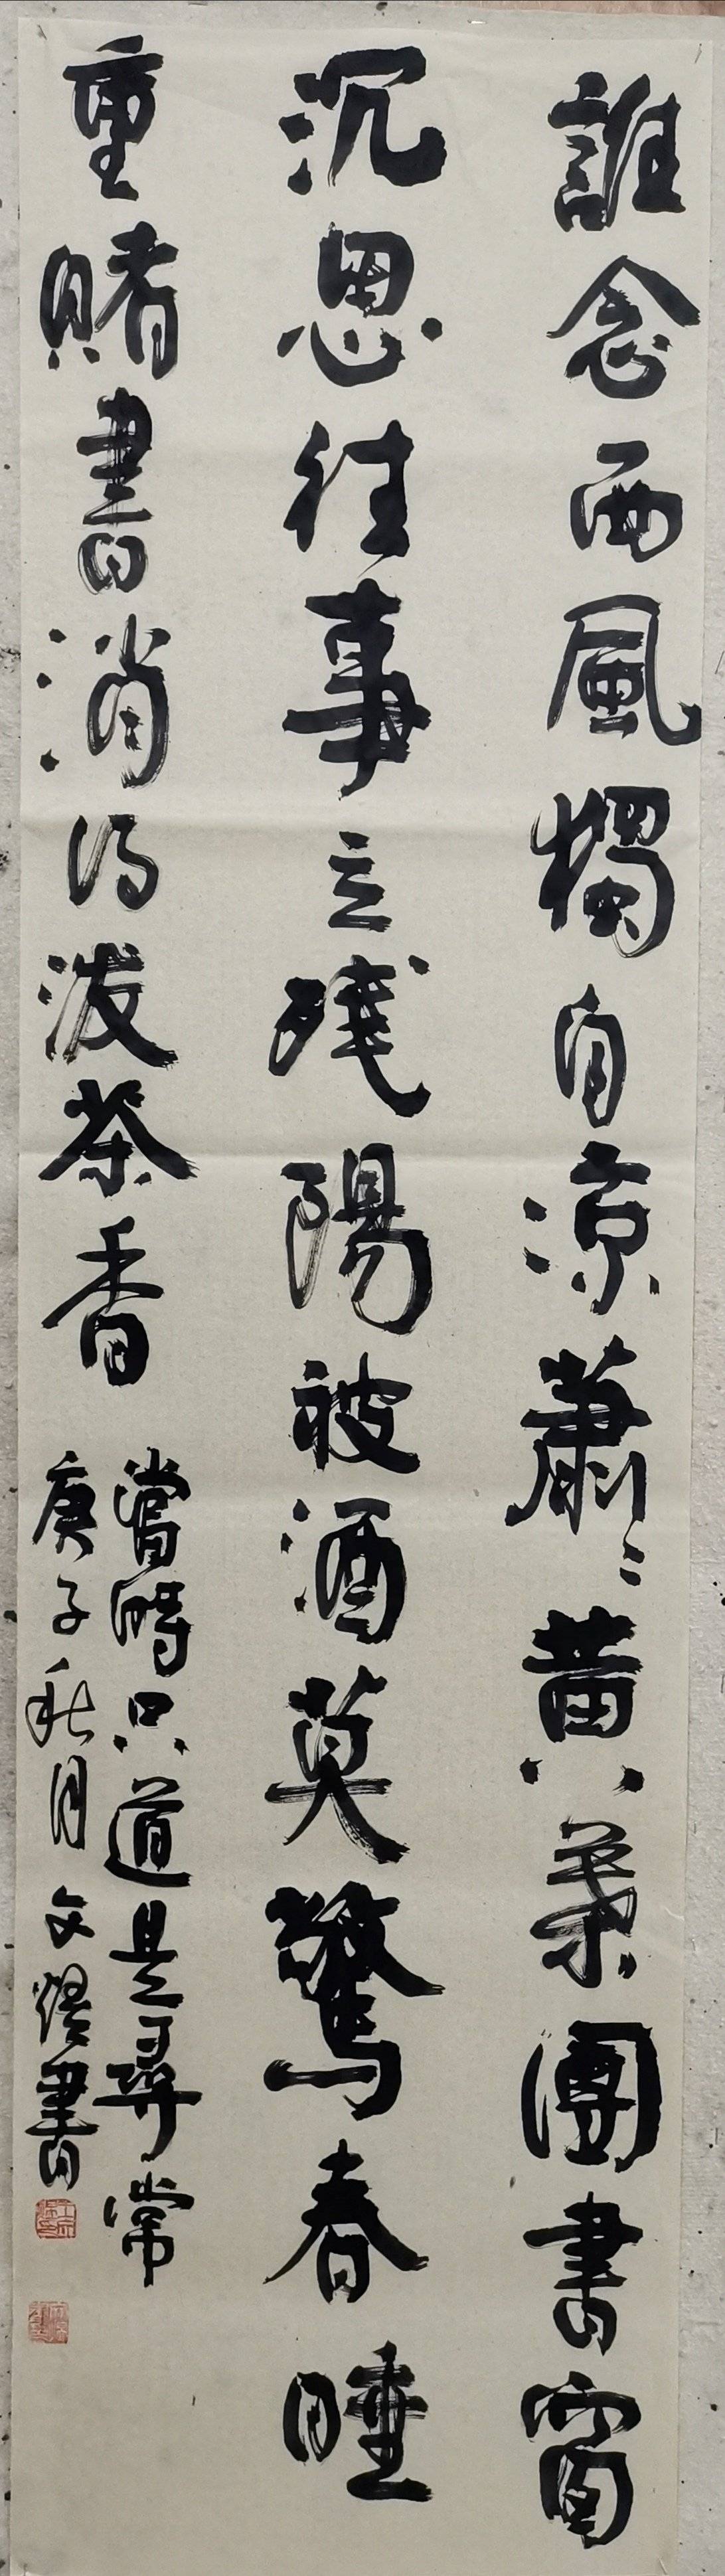 誰念西風獨自凉蕭〻黄葉團書窗
沉思往事立殘陽被酒莫驚春睡
重賭書消得潑茶香
當時只道是尋常
庚子秋月文書